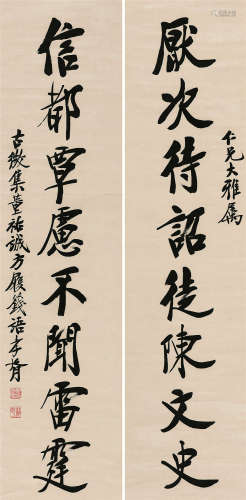 厭次待詔徒陳文史
仁兄大雅屬
信都覃慮不聞雷霆
古微集董祐誠方履籛語孝臧